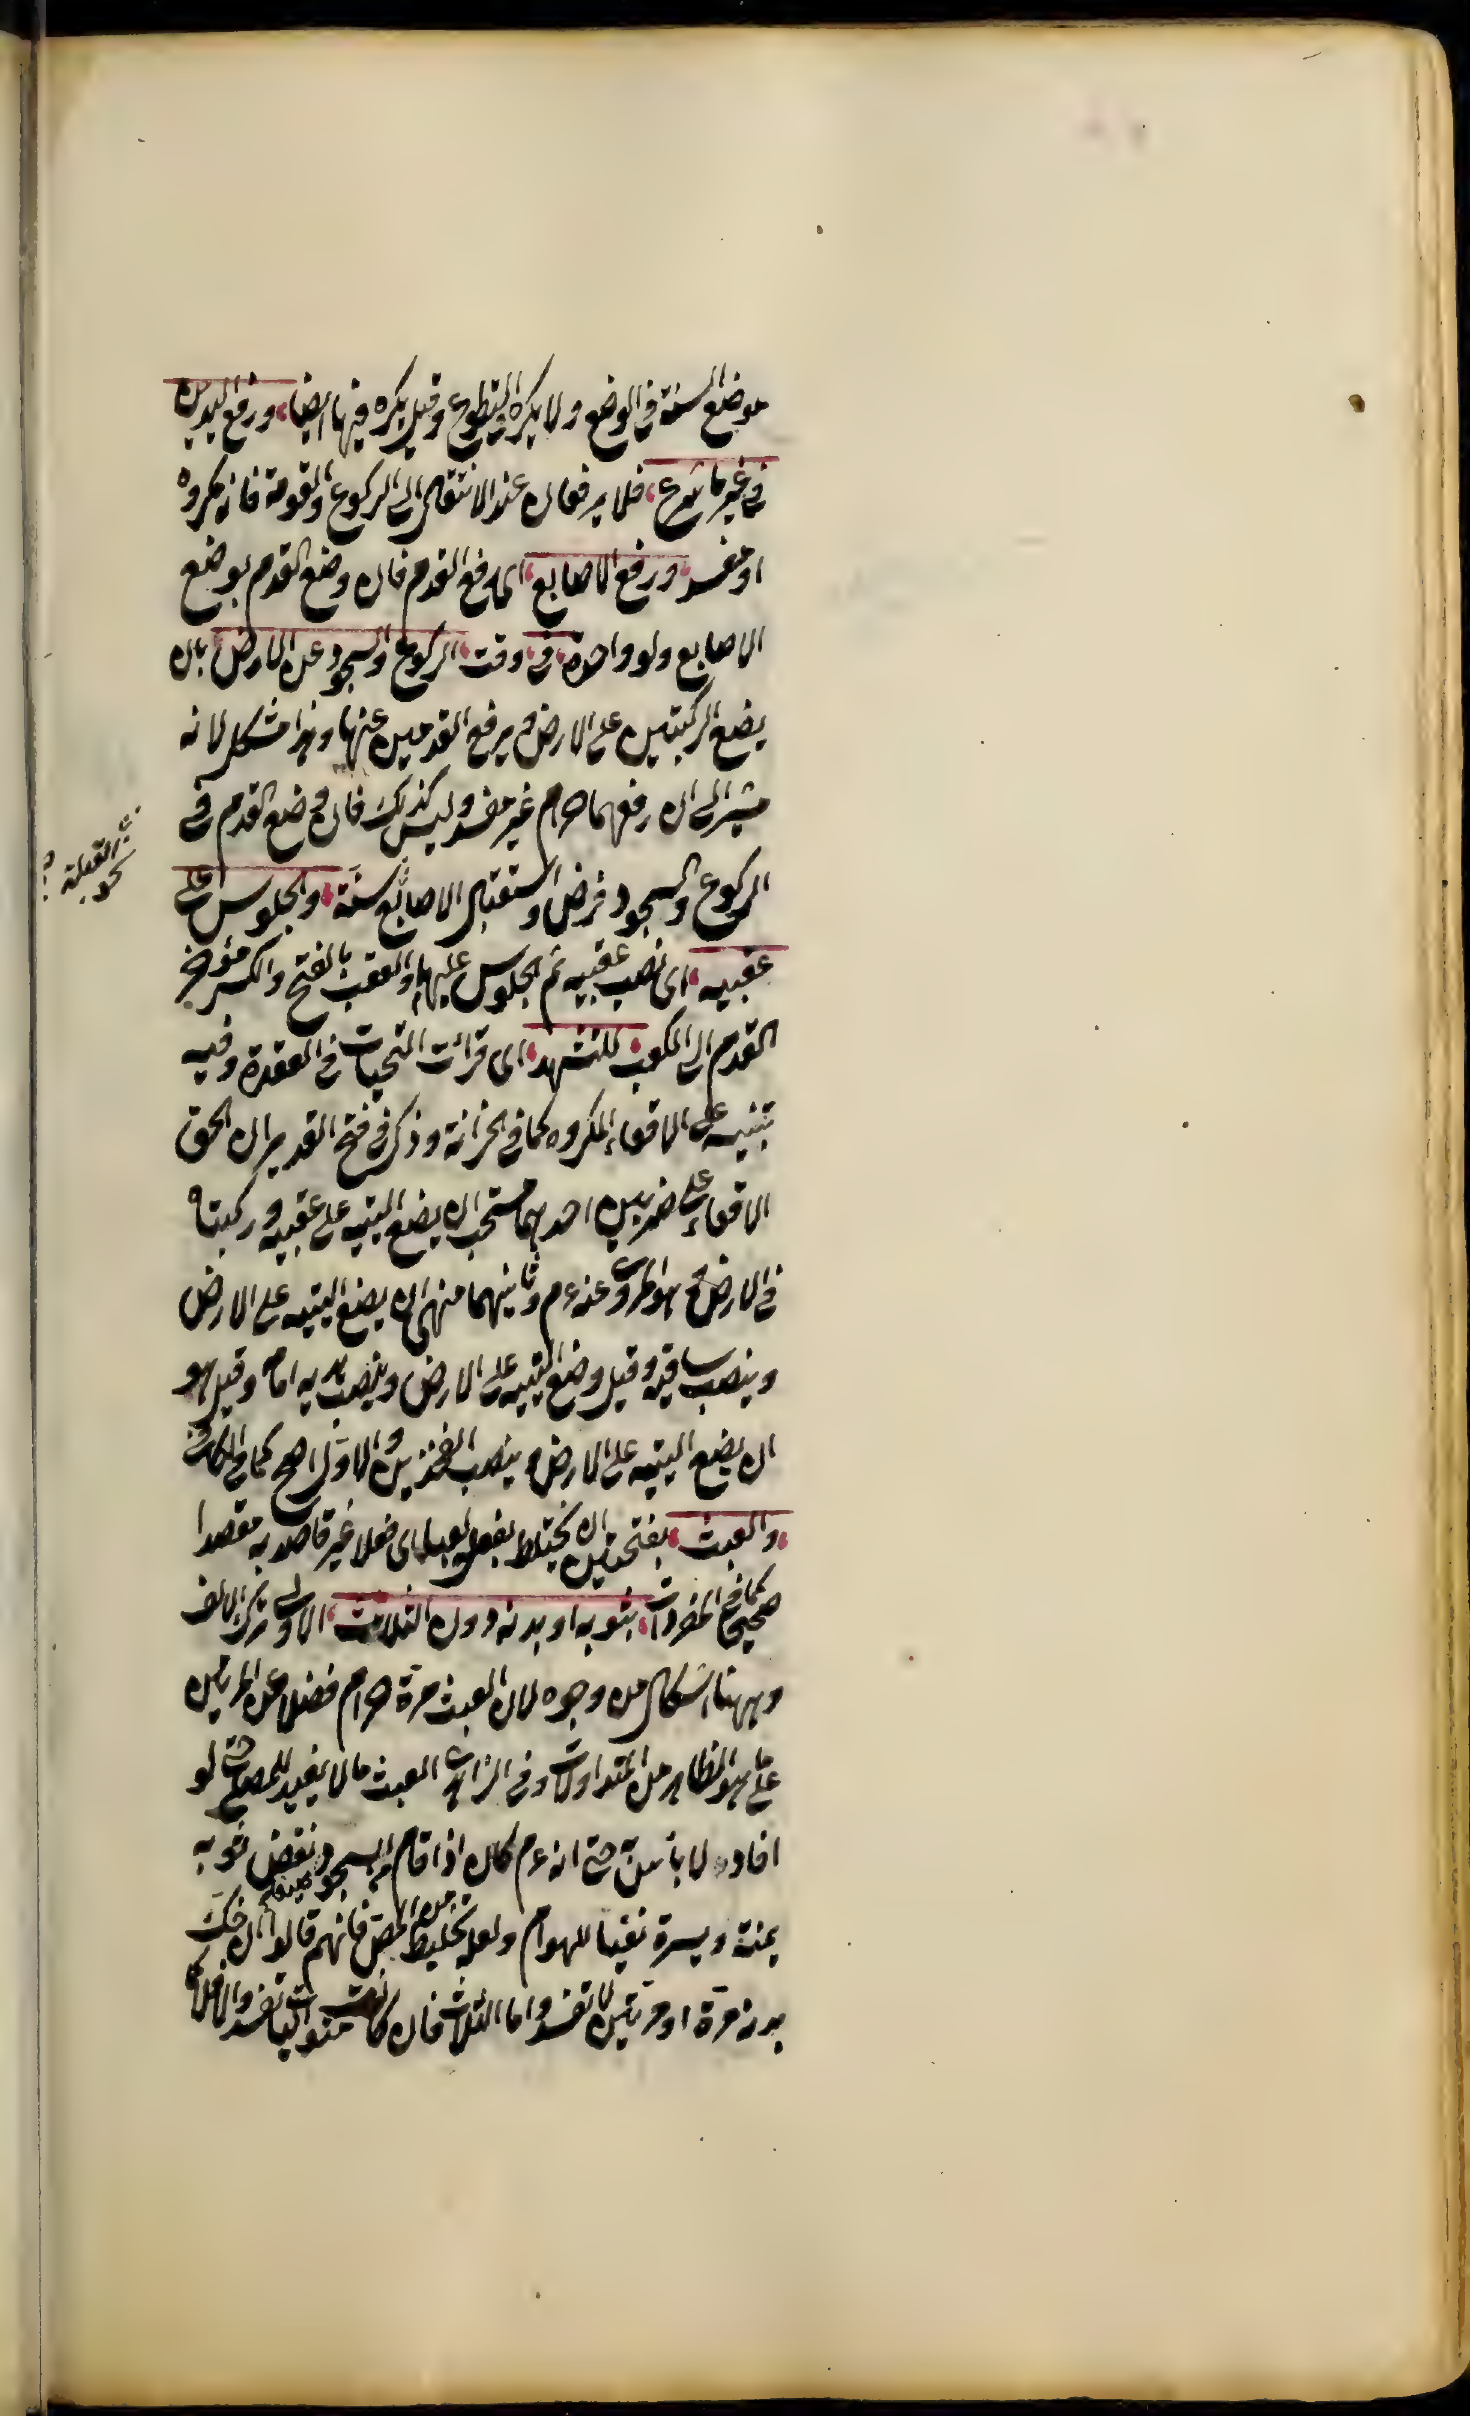 موضع السنة في الوضع ولا يكره في التطوع وقيل يكره فيها ايضا ورفع اليدين
في غير ما شرع فلا يرفعان عند الانتقال الى الركوع والقومة فانه مكروه
او مفسد ورفع الاصابع اى رفع القدم فان وضع القدم بوضع
الاصابع ولو واحدة في وقت الركوع والسجود عن الارض بان
يضع الركبتين على الارض ويرفع القدمين عنها وهذا مشكل لانه
مشير الى ان رفعهما حرام غير مفسد وليس كذلك فان وضع القدم في
الركوع والسجود فرض واستقبال الاصابع سنة والجلوس على
عقبيه اى نصب عقبيه ثم الجلوس عليها والعقب بالفتح والكسر مؤخر
القدم الى الكعب للتشهد اى قرائت التحيات في القعدة وفيه
تنبيه على الاقعاء المكروه كما في الخزانة وذكر في فتح القدير ان الحق
الاقعاء على ضربين احدهما مستحب ان يضع اليتيه على عقبيه وركبتاه
في الارض وهو المروى عنه عم وثانيهما منهى ان يضع اليتيه على الارض
وينصب ساقيه وقيل وضع اليتيه على الارض وينصب يديه امامه وقيل هو
ان يضع اليتيه على الارض وينصب الفخذين والاول اصح كما في الكافى
والعبث بفتحتين ان يختلط بفعله لعبا اى فعلا غير قاصد به مقصدا
صحيحا كما في المفردات بثوبه او بدنه دون الثلاث الاولى ترك الالف
وههنا اشكال من وجوه لان العبث مرة حرام فضلا عن المرتين
على ما هو الظاهر من المتداولات وفي الزاهدى العبث ما لا يفيد للمصلى حتى لو
افاده لا بأس به حتى انه عم كان اذا قام من السجود نفض ثوبه
يمنة ويسرة نفيا للهوام ولعله تخليط من المص فانهم قالوا ان حك
بدنه مرة او مرتين لا تفسد واما الثلاث فان كانت متواليا تفسد والا فلا
نحو القبلة